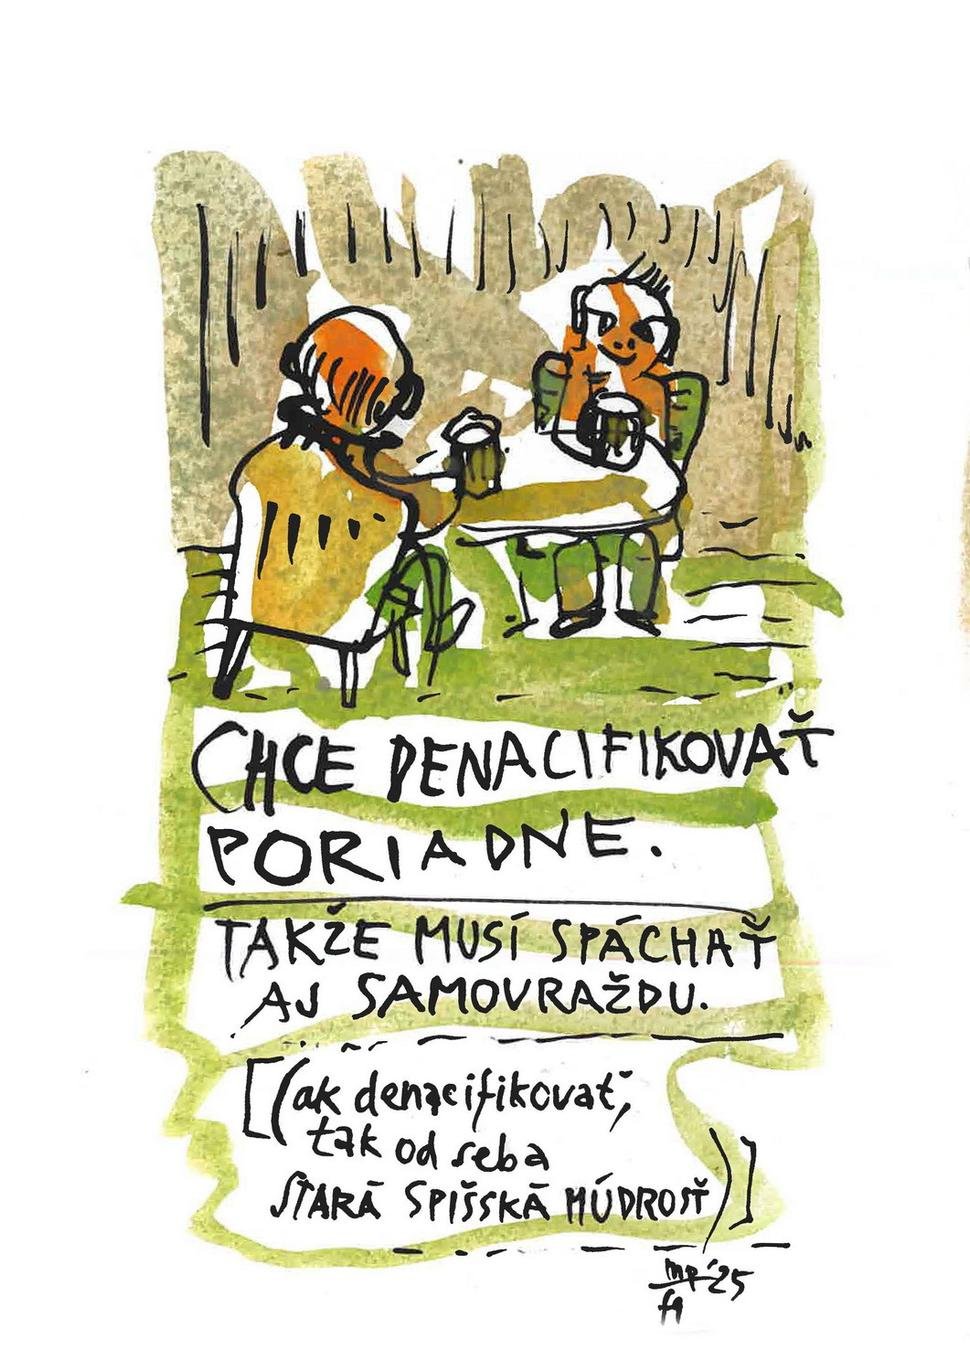 CHCE DENACIFIKOVAŤ
PORIADNE.
TAKŽE MUSÍ SPÁCHAŤ
AJ SAMOVRAŽDU.
[(ak denacifikovať,
tak od seba
STARÁ SPIŠSKÁ MÚDROSŤ)]
'25